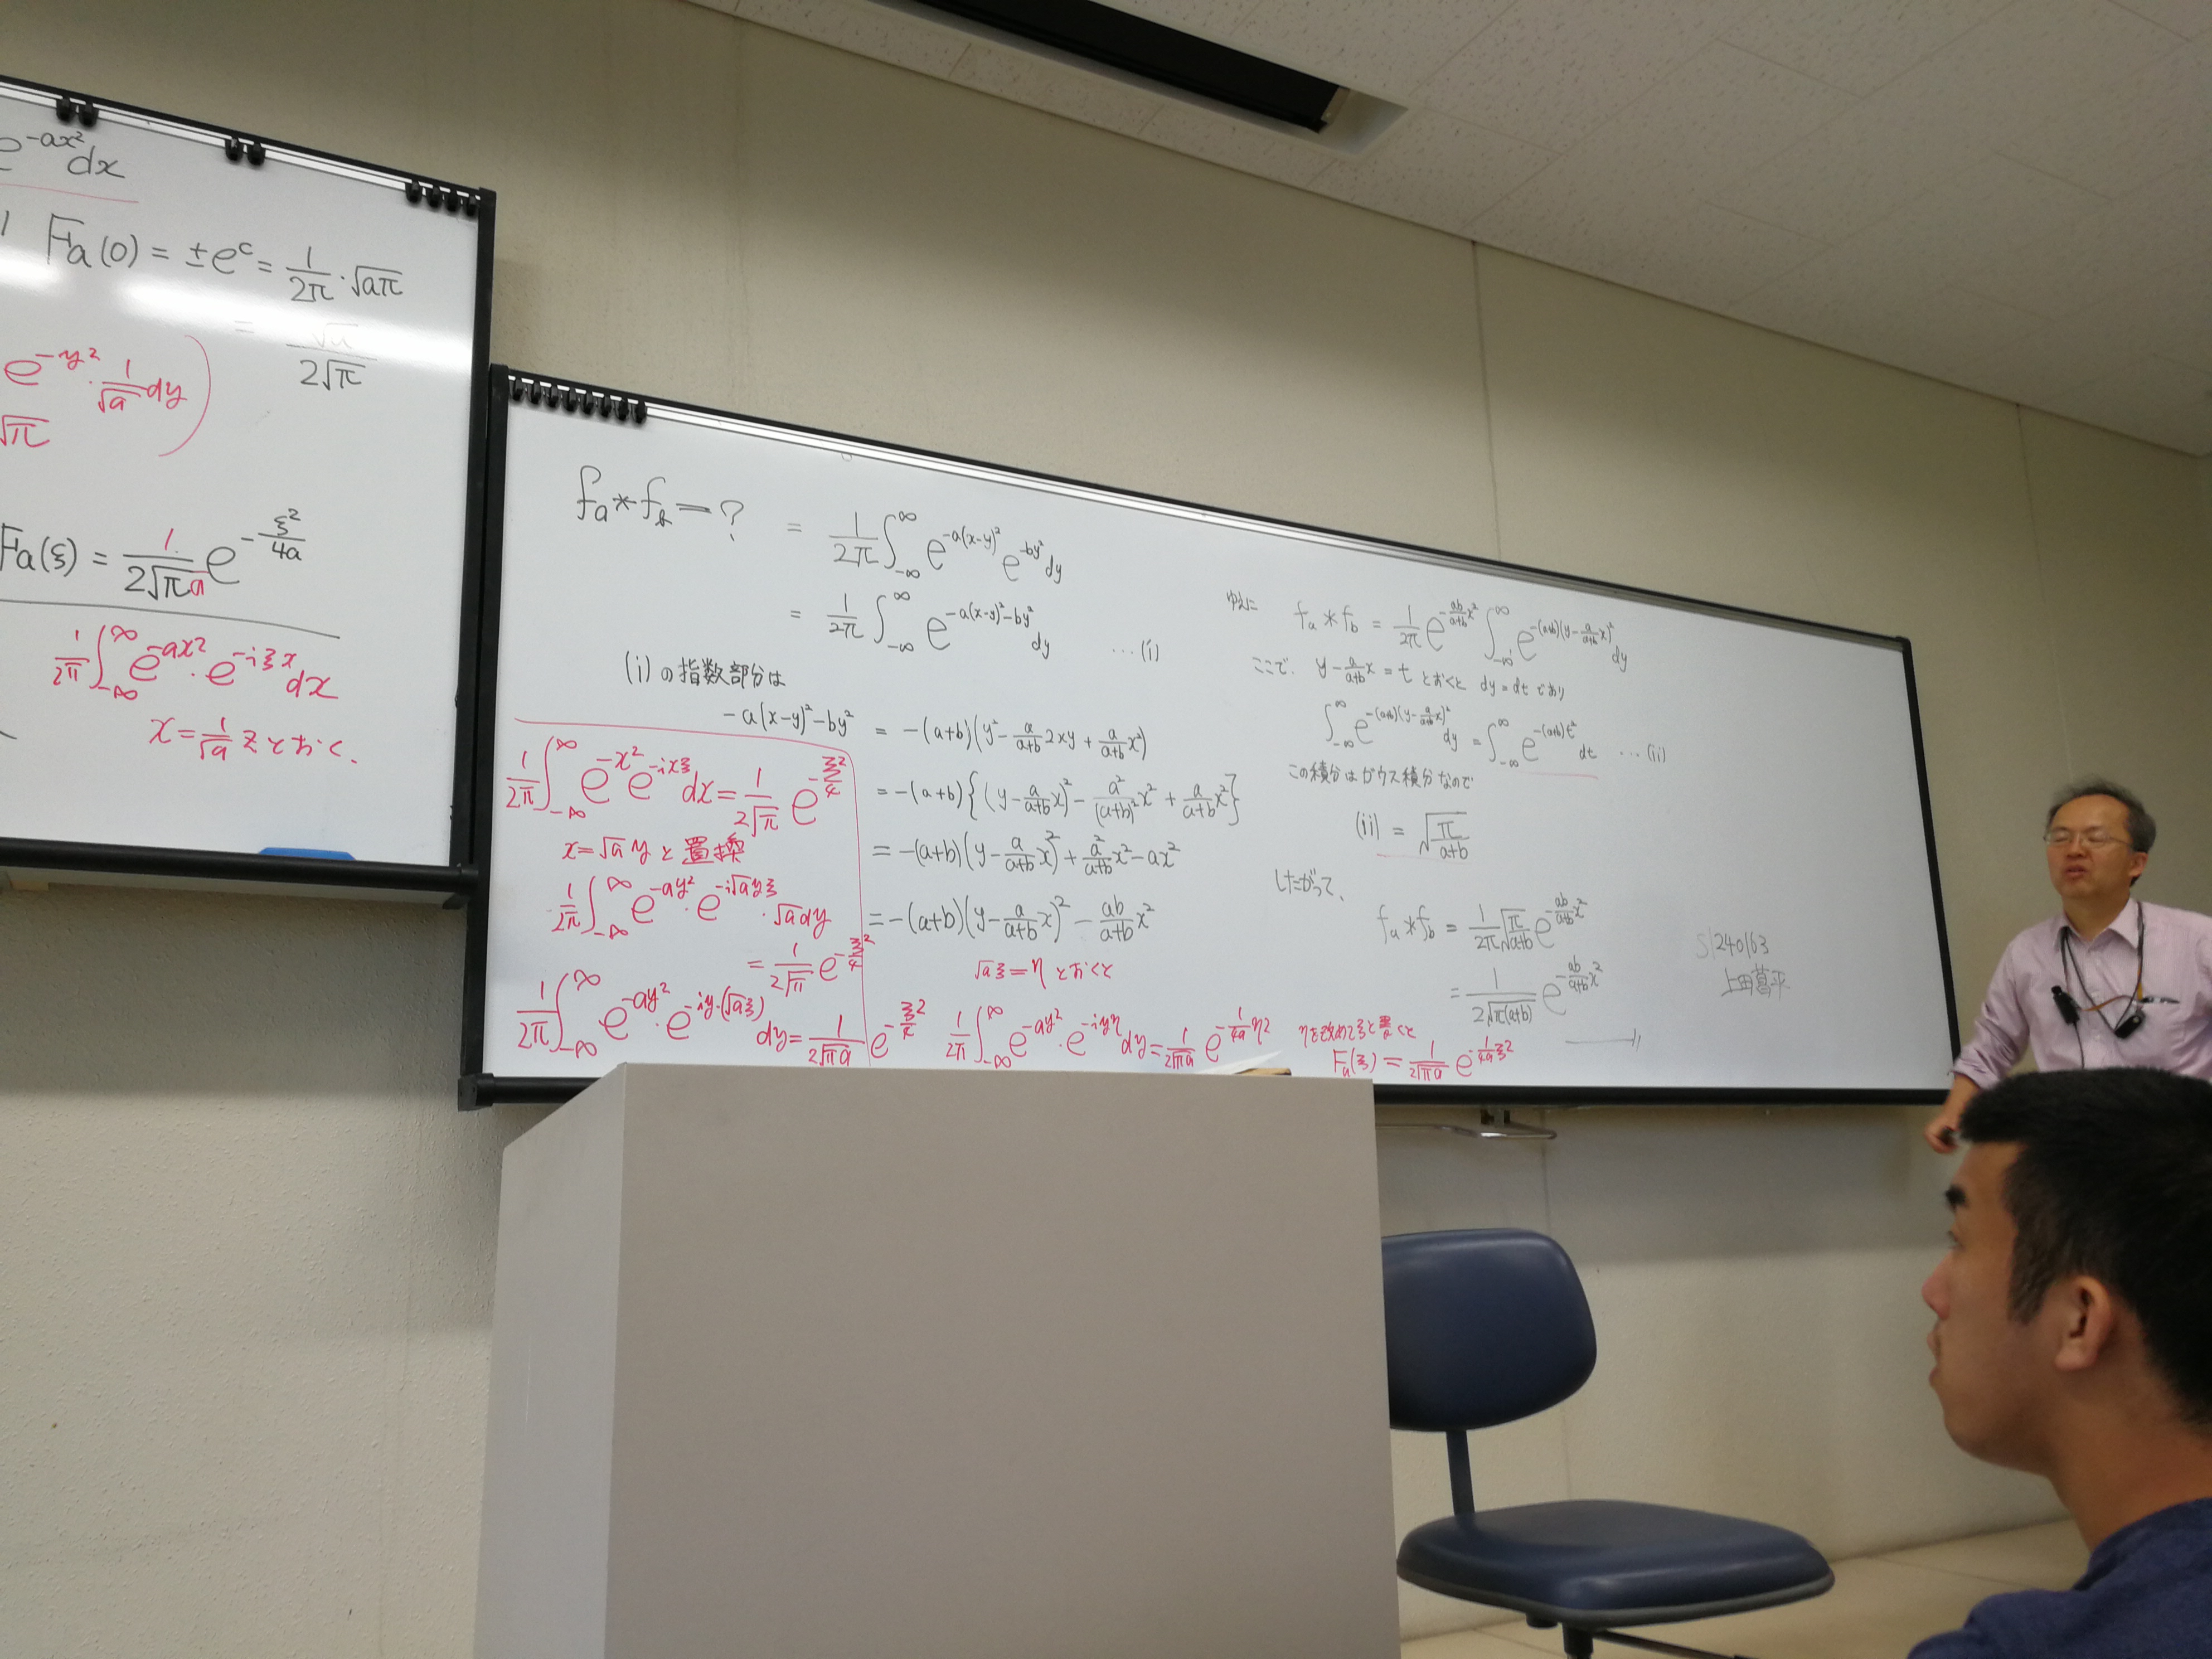 e^{-ax²}dx
Fa(0) = ±e^c = 1/2π・√aπ
= √a/2√π
e^{-y²}・1/√a dy
√π
Fa(ξ) = 1/2√πa e^{-ξ²/4a}
1/2π ∫_{-∞}^{∞} e^{-ax²}・e^{-iξx}dx
x = 1/√a z とおく.
fa * fb = ?
= 1/2π ∫_{-∞}^{∞} e^{-a(x-y)²} e^{-by²} dy
= 1/2π ∫_{-∞}^{∞} e^{-a(x-y)²-by²} dy …(i)
(i)の指数部分は
-a(x-y)²-by² = -(a+b)(y² - a/a+b 2xy + a/a+b x²)
= -(a+b){(y - a/a+b x)² - a²/(a+b)² x² + a/a+b x²}
= -(a+b)(y - a/a+b x)² + a²/a+b x² - ax²
= -(a+b)(y - a/a+b x)² - ab/a+b x²
1/2π ∫_{-∞}^{∞} e^{-x²} e^{-ixξ} dx = 1/2√π e^{-ξ²/4}
x = √a y と置換
1/2π ∫_{-∞}^{∞} e^{-ay²}・e^{-i√ayξ}・√a dy
= 1/2√π e^{-ξ²/4}
1/2π ∫_{-∞}^{∞} e^{-ay²}・e^{-iy・(√aξ)} dy = 1/2√πa e^{-ξ²/4}
√aξ = η とおくと
1/2π ∫_{-∞}^{∞} e^{-ay²}・e^{-iyη} dy = 1/2√πa e^{-1/4a η²}
ηを改めてξと置くと
Fa(ξ) = 1/2√πa e^{-1/4a ξ²}
ゆえに fa * fb = 1/2π e^{-ab/a+b x²} ∫_{-∞}^{∞} e^{-(a+b)(y - a/a+b x)²} dy
ここで. y - a/a+b x = t とおくと dy = dt であり
∫_{-∞}^{∞} e^{-(a+b)(y - a/a+b x)²} dy = ∫_{-∞}^{∞} e^{-(a+b)t²} dt …(ii)
この積分はガウス積分なので
(ii) = √π/a+b
したがって、
fa * fb = 1/2π √π/a+b e^{-ab/a+b x²}
= 1/2√π(a+b) e^{-ab/a+b x²}
S1240163